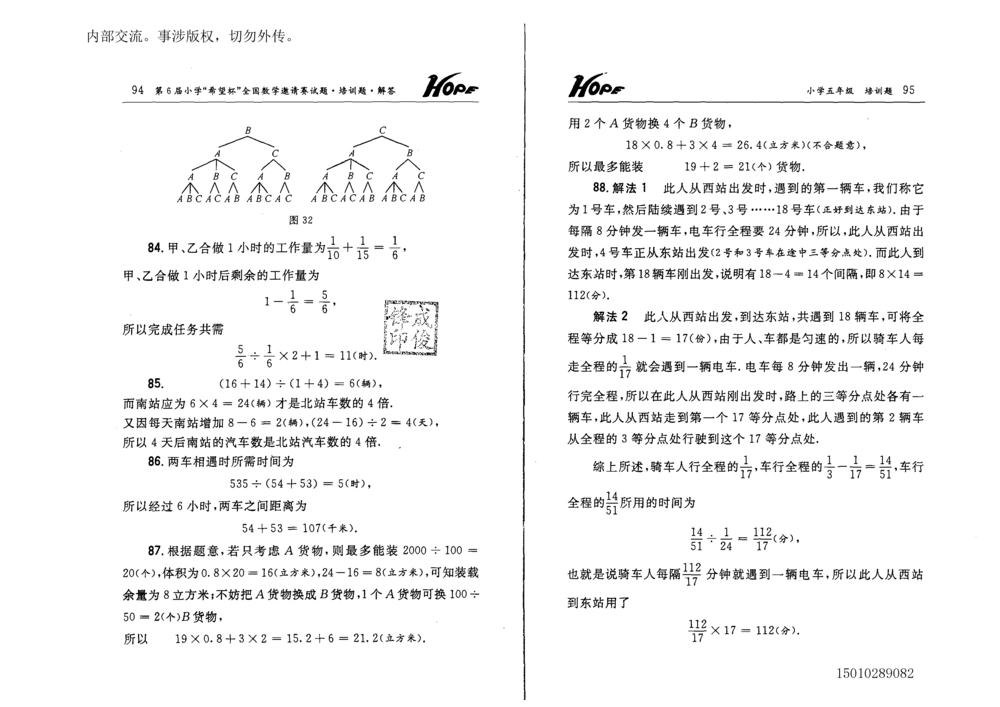 内部交流。事涉版权，切勿外传。
94 第6届小学“希望杯”全国数学邀请赛试题·培训题·解答
HOPE
B C
A C A B
A B C A B A B C A C
A B C A C A B A B C A C A B C A C A B A B C A B
图 32
84. 甲、乙合做 1 小时的工作量为 1/10 + 1/15 = 1/6,
甲、乙合做 1 小时后剩余的工作量为
1 − 1/6 = 5/6,
所以完成任务共需
5/6 ÷ 1/6 × 2 + 1 = 11(时).
85. (16 + 14) ÷ (1 + 4) = 6(辆),
而南站应为 6 × 4 = 24(辆) 才是北站车数的 4 倍.
又因每天南站增加 8 − 6 = 2(辆),(24 − 16) ÷ 2 = 4(天),
所以 4 天后南站的汽车数是北站汽车数的 4 倍.
86. 两车相遇时所需时间为
535 ÷ (54 + 53) = 5(时),
所以经过 6 小时,两车之间距离为
54 + 53 = 107(千米).
87. 根据题意,若只考虑 A 货物,则最多能装 2000 ÷ 100 =
20(个),体积为 0.8 × 20 = 16(立方米),24 − 16 = 8(立方米),可知装载
余量为 8 立方米;不妨把 A 货物换成 B 货物,1 个 A 货物可换 100 ÷
50 = 2(个)B 货物,
所以 19 × 0.8 + 3 × 2 = 15.2 + 6 = 21.2(立方米).
成俊锋印
HOPE
小学五年级 培训题 95
用 2 个 A 货物换 4 个 B 货物,
18 × 0.8 + 3 × 4 = 26.4(立方米)(不合题意),
所以最多能装 19 + 2 = 21(个) 货物.
88. 解法 1 此人从西站出发时,遇到的第一辆车,我们称它
为 1 号车,然后陆续遇到 2 号、3 号……18 号车(正好到达东站). 由于
每隔 8 分钟发一辆车,电车行全程要 24 分钟,所以,此人从西站出
发时,4 号车正从东站出发(2 号和 3 号车在途中三等分点处). 而此人到
达东站时,第 18 辆车刚出发,说明有 18 − 4 = 14 个间隔,即 8 × 14 =
112(分).
解法 2 此人从西站出发,到达东站,共遇到 18 辆车,可将全
程等分成 18 − 1 = 17(份),由于人、车都是匀速的,所以骑车人每
走全程的 1/17 就会遇到一辆电车. 电车每 8 分钟发出一辆,24 分钟
行完全程,所以在此人从西站刚出发时,路上的三等分点处各有一
辆车,此人从西站走到第一个 17 等分点处,此人遇到的第 2 辆车
从全程的 3 等分点处行驶到这个 17 等分点处.
综上所述,骑车人行全程的 1/17,车行全程的 1/3 − 1/17 = 14/51,车行
全程的 14/51 所用的时间为
14/51 ÷ 1/24 = 112/17(分),
也就是说骑车人每隔 112/17 分钟就遇到一辆电车,所以此人从西站
到东站用了
112/17 × 17 = 112(分).
15010289082